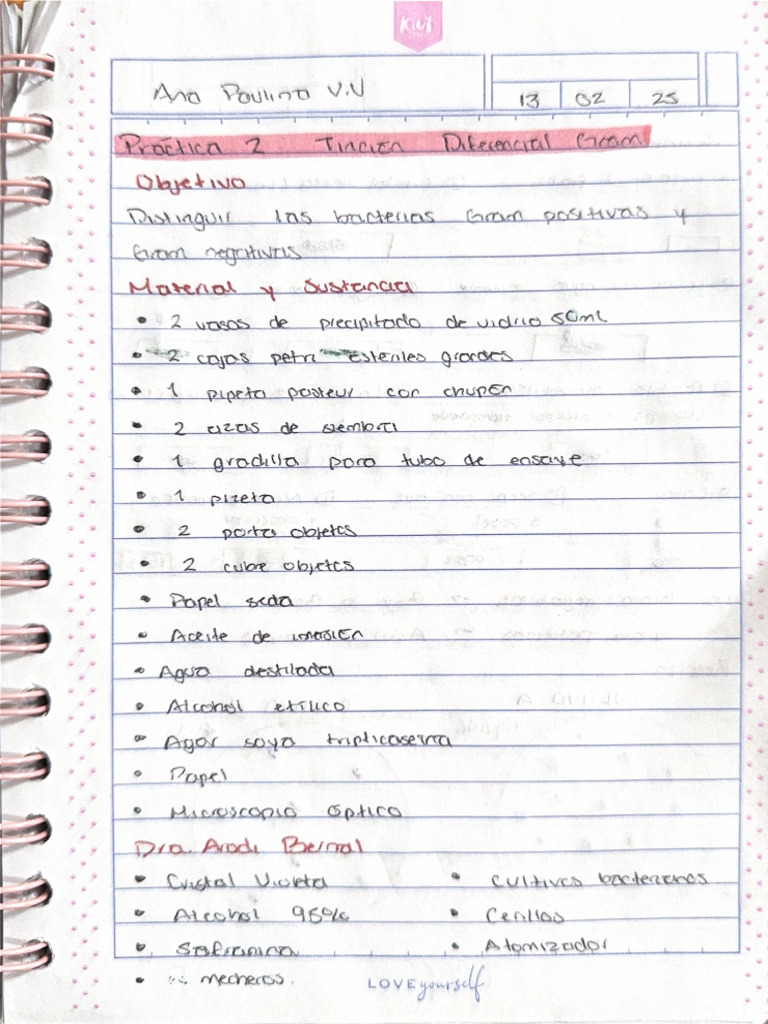 KIUT
Ana Paulina V.V
13 02 25
Práctica 2 Tinción Diferencial Gram
Objetivo
Distinguir las bacterias Gram positivas y
Gram negativas
Material y Sustancia
• 2 vasos de precipitado de vidrio 50ml
• 2 cajas petri esteriles grandes
• 1 pipeta pasteur con chupón
• 2 azas de siembra
• 1 gradilla para tubo de ensaye
• 1 pizeta
• 2 porta objetos
• 2 cubre objetos
• Papel seda
• Aceite de inmersión
• Agua destilada
• Alcohol etílico
• Agar soya tripticaseina
• Papel
• Microscopio óptico
Dra. Aradi Bernal
• Cristal Violeta • Cultivos bacterianos
• Alcohol 95% • Cerillos
• Safranina • Atomizador
• mecheros.
LOVE yourself